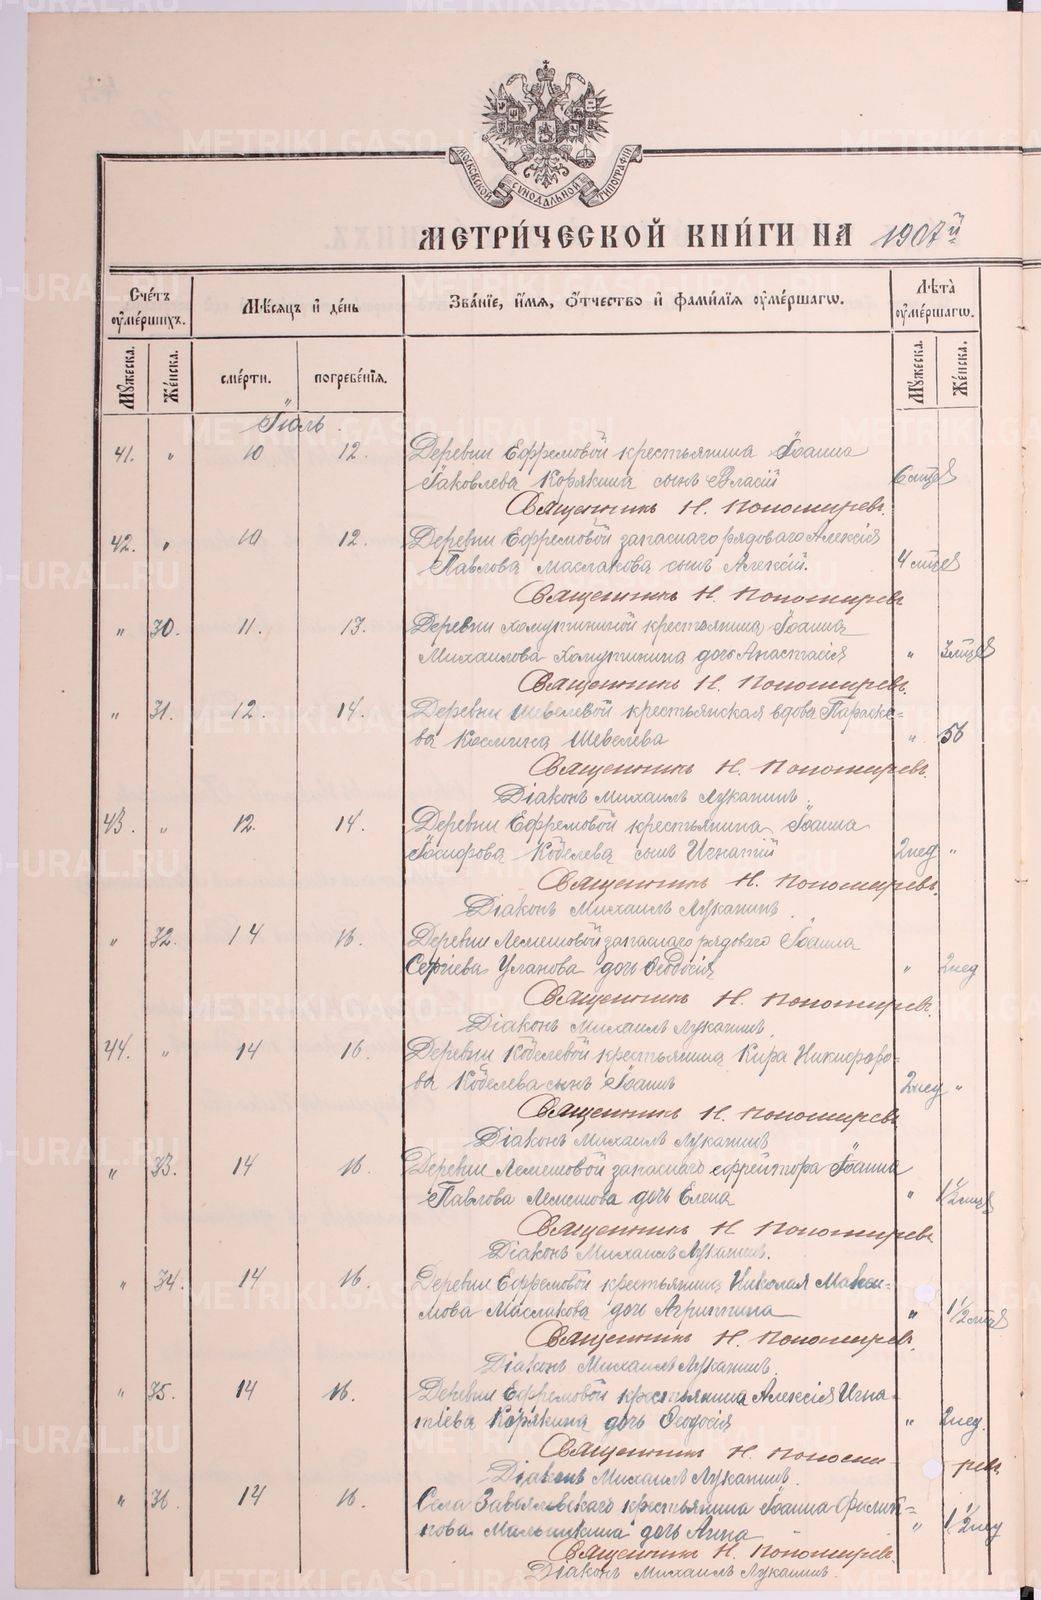 МОСКОВСКОЙ СѴНОДАЛЬНОЙ ТИПОГРАФІИ
МЕТРИ́ЧЕСКОЙ КНИ́ГИ НА 1907й
Сче́тъ оу҆ме́ршихъ. Мѣ́сяцъ и҆ де́нь Зва́нїе, и҆́мя, о҆́тчество и҆ фами́лїя оу҆ме́ршагѡ. Лѣ́та оу҆ме́ршагѡ.
Мꙋ́жеска. Же́нска. сме́рти. погребе́нїя. Мꙋ́жеска. Же́нска.
Іюль.
41. " 10 12. Деревни Ефремовой крестьянина Іоанна
Іаковлева Корякина сынъ Власій 6 мцев
Священникъ Н. Пономаревъ.
42. " 10 12. Деревни Ефремовой запаснаго рядоваго Алексія
Павлова Маслакова сынъ Алексій. 4 мцев
Священникъ Н. Пономаревъ
" 30. 11. 13. Деревни Хомутининой крестьянина Іоанна
Михаилова Хомутинина дочь Анастасія " 3 мцев
Священникъ Н. Пономаревъ.
" 31. 12. 14. Деревни Шевелевой крестьянская вдова Параске=
ва Космина Шевелева " 56
Священникъ Н. Пономаревъ.
Діаконъ Михаилъ Луканинъ.
43. " 12. 14. Деревни Ефремовой крестьянина Іоанна
Іосифова Кобелева сынъ Игнатій 2 нед "
Священникъ Н. Пономаревъ.
Діаконъ Михаилъ Луканинъ.
" 32. 14 16. Деревни Лемешовой запаснаго рядового Іоанна
Сергіева Уланова дочь Феодосія " 2 нед
Священникъ Н. Пономаревъ.
Діаконъ Михаилъ Луканинъ.
44. " 14 16. Деревни Кобелевой крестьянина Кира Никифоро=
ва Кобелева сынъ Іоаннъ 2 нед "
Священникъ Н. Пономаревъ
Діаконъ Михаилъ Луканинъ
" 33. 14 16. Деревни Лемешовой запаснаго ефрейтора Іоанна
Павлова Лемешова дочь Елена " 1 1/2 мцев
Священникъ Н Пономаревъ
Діаконъ Михаилъ Луканинъ.
" 34. 14 16. Деревни Ефремовой крестьянина Николая Макси-
мова Маслакова дочь Агриппина " 1 1/2 мцев
Священникъ Н. Пономаревъ.
Діаконъ Михаилъ Луканинъ.
" 35. 14 16. Деревни Ефремовой крестьянина Алексія Игна-
тіева Корякина дочь Феодосія " 2 нед.
Священникъ Н. Пономаревъ
Діаконъ Михаилъ Луканинъ.
" 36. 14 16. Села Завьяловскаго крестьянина Іоанна Филип=
пова Мальшкина дочь Анна " 1 1/2 нед
Священникъ Н. Пономаревъ.
Діаконъ Михаилъ Луканинъ.
METRIKI.GASO-URAL.RU